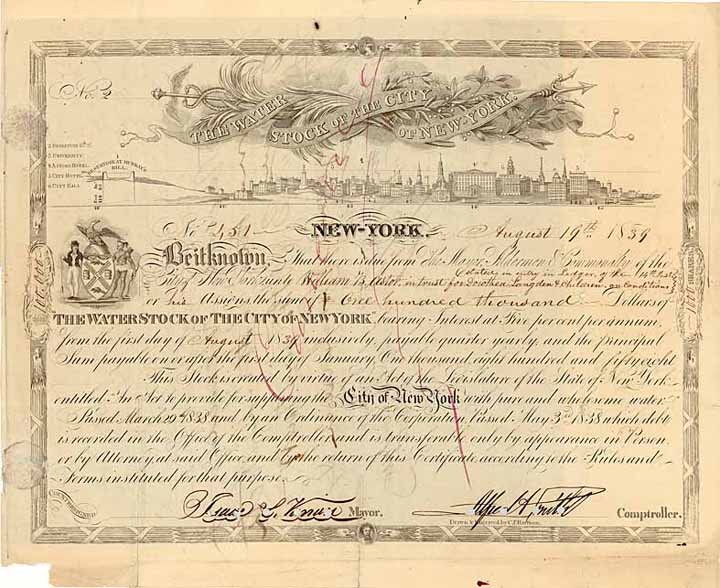 No. 2
THE WATER STOCK OF THE CITY OF NEW-YORK.
2 UNIVERSITY
3 ASTORS HOTEL
5 CITY HOTEL
6 CITY HALL
RESERVOIR AT MURRAY HILL
No. 451 NEW-YORK. August 19th 1839
Be it known That there is due from The Mayor, Aldermen & Commonalty of the
City of New York unto William B. Astor, in trust for Dorothea Langdon & Children, on conditions
(stated in entry in Ledger of the
or his Assigns the sum of One hundred thousand Dollars of
THE WATER STOCK OF THE CITY OF NEW YORK bearing Interest at Five per cent per annum,
from the first day of August 1839 inclusively, payable quarter yearly, and the principal
Sum payable on or after the first day of January, One thousand, eight hundred and fifty eight
This Stock is created by virtue of an Act of the Legislature of the State of New York
entitled An Act to provide for supplying the City of New York with pure and wholesome water
Passed March 29th 1838 and by an Ordinance of the Corporation Passed May 3d 1838 which debt
is recorded in the Office of the Comptroller and is transferable only by appearance in Person
or by Attorney at said Office, and by the return of this Certificate according to the Rules and
Forms instituted for that purpose.
COUNTERSIGNED
Isaac L. Varian Mayor.
Comptroller.